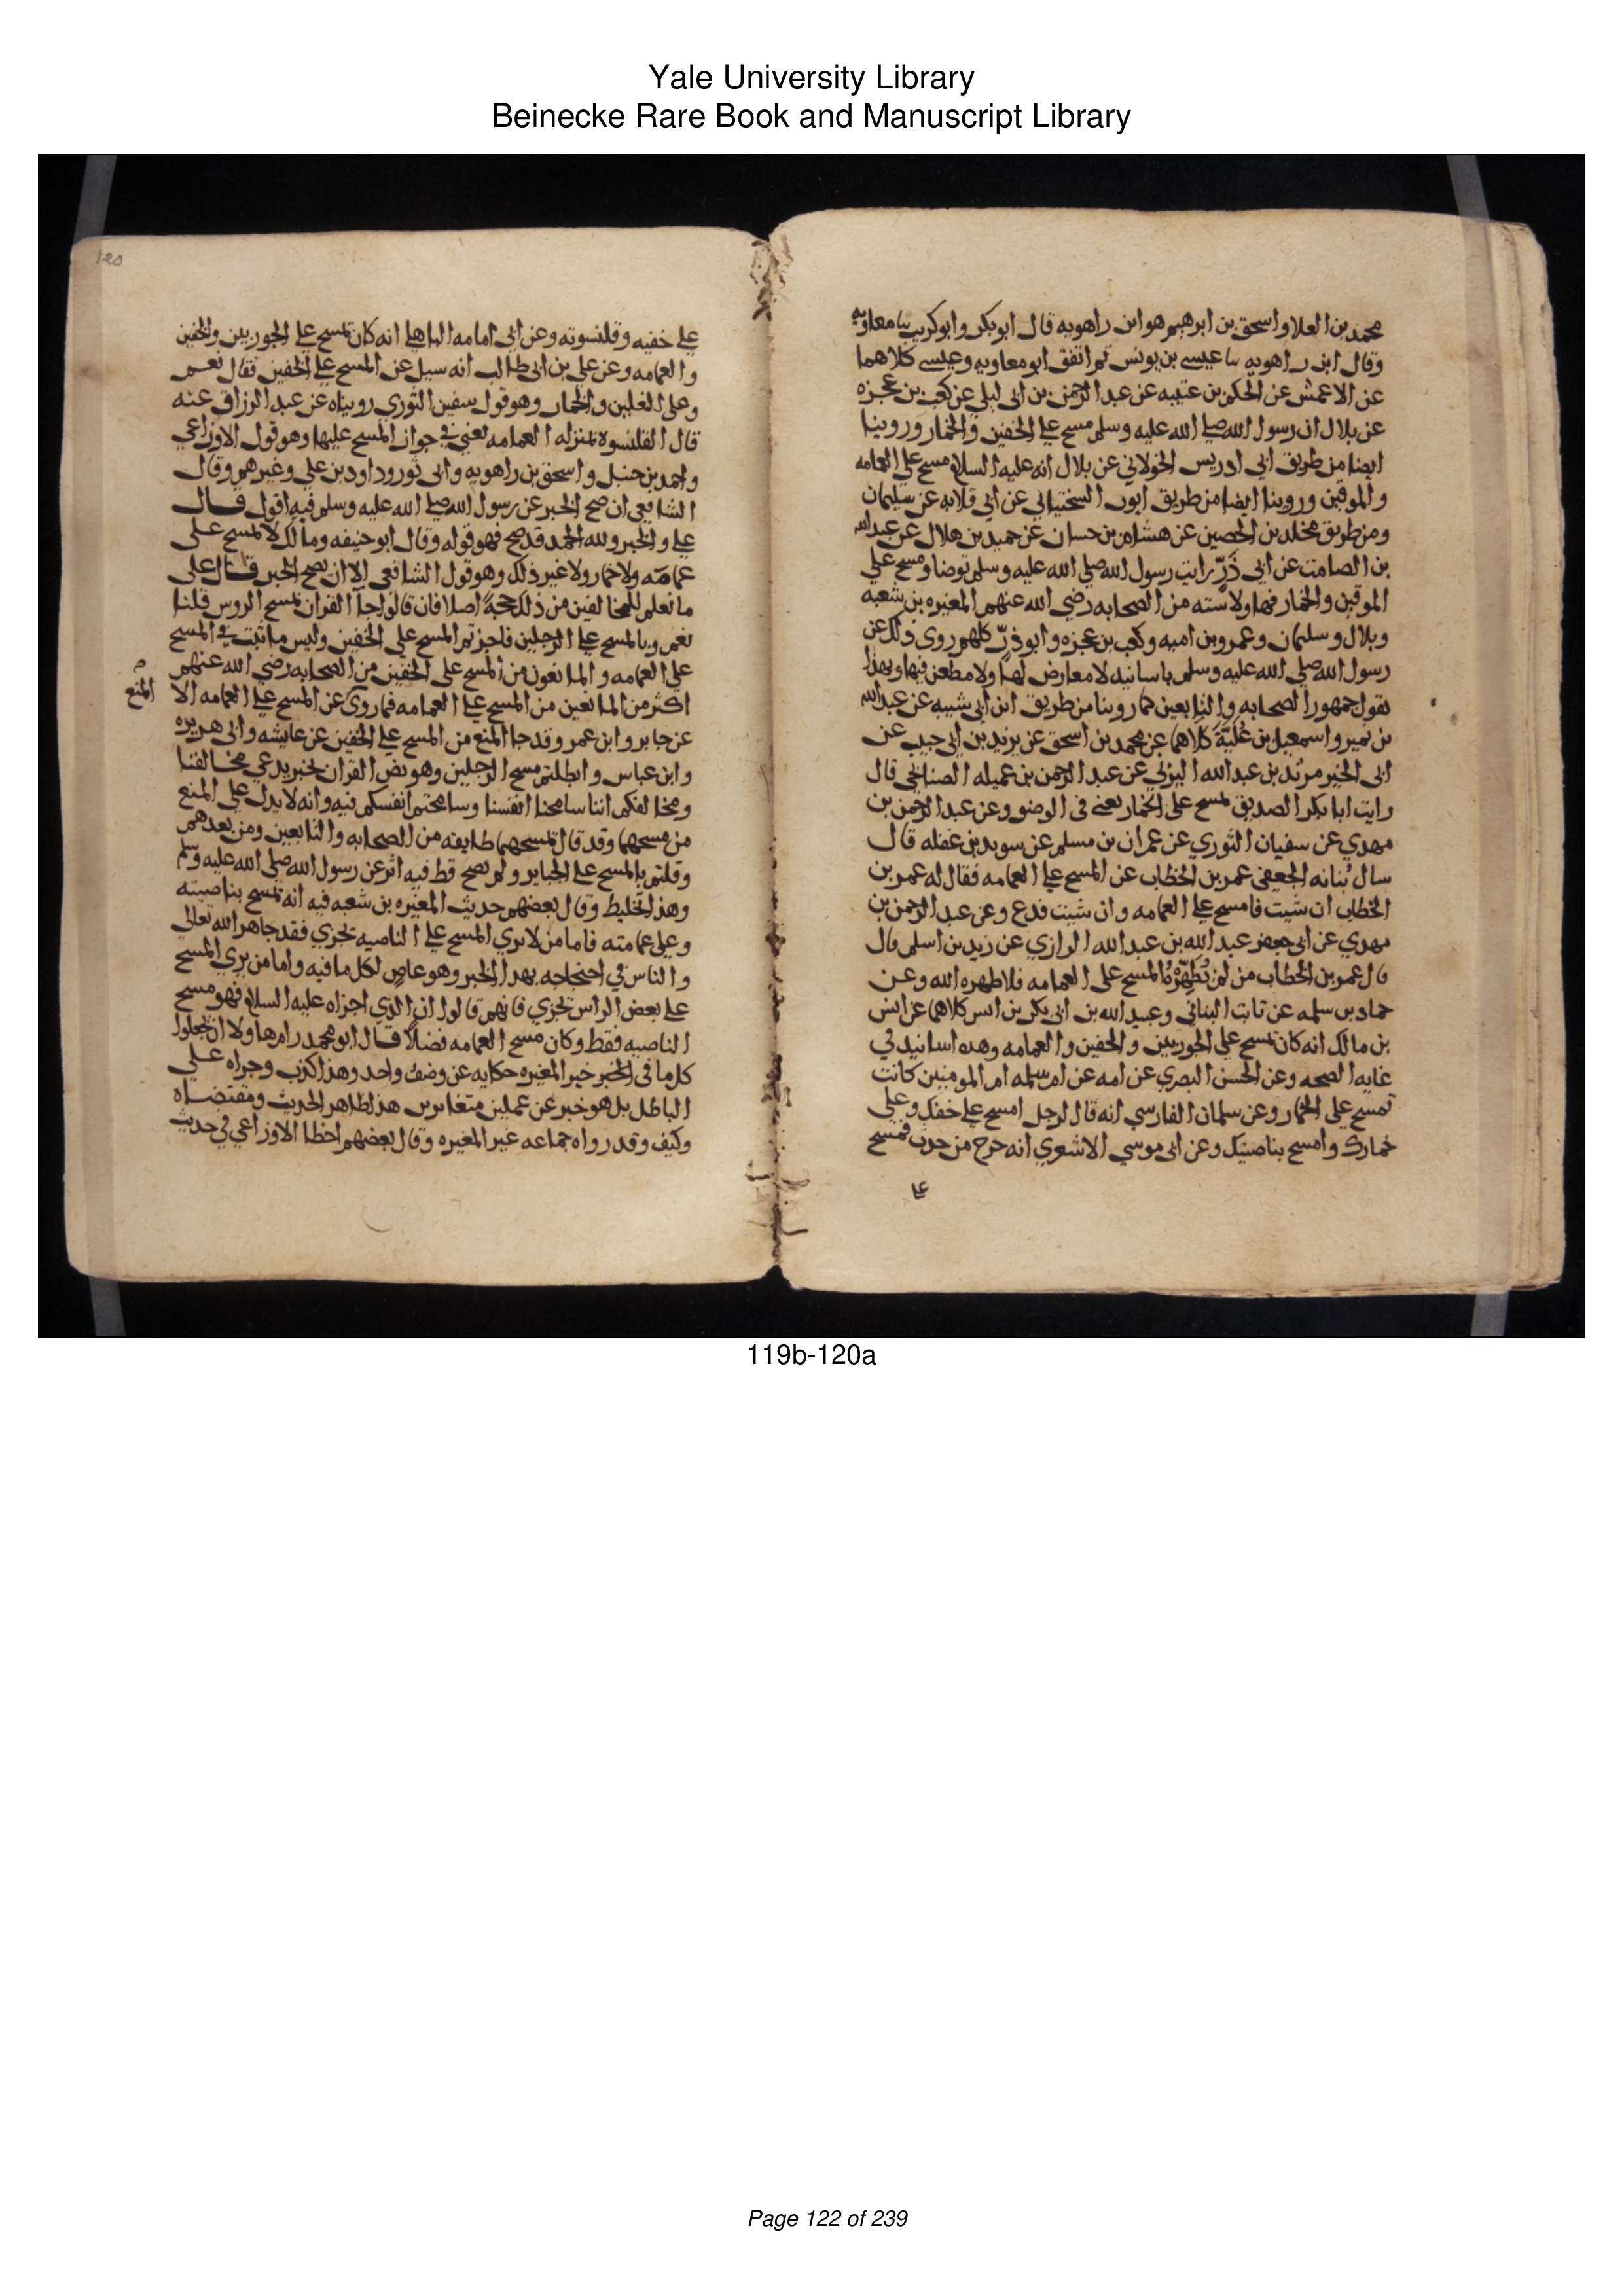 Yale University Library
Beinecke Rare Book and Manuscript Library
محمد بن العلا واسحق بن ابرهيم هو ابن راهويه قال ابو بكر وابو كريب نا معاويه
وقال ابن راهويه نا عيسى بن يونس ثم اتفق ابو معاويه وعيسى كلاهما
عن الاعمش عن الحكم بن عتيبه عن عبد الرحمن بن ابي ليلى عن كعب بن عجزه
عن بلال ان رسول الله صلى الله عليه وسلم مسح على الخفين والخمار وروينا
ايضا من طريق ابي ادريس الخولاني عن بلال انه عليه السلام مسح على العمامه
والموقين وروينا ايضا من طريق ايوب السختياني عن ابي قلابه عن سليمان
ومن طريق مخلد بن الحصين عن هشام بن حسان عن حميد بن هلال عن عبد الله
بن الصامت عن ابي ذَرّ رايت رسول الله صلى الله عليه وسلم توضا ومسح على
الموقين والخمار فهاولا سته من الصحابه رضي الله عنهم المغيره بن شعبه
وبلال وسلمان وعمرو بن اميه وكعب بن عجزه وابو ذرّ كلهم روى ذلك عن
رسول الله صلى الله عليه وسلم باسانيد لا معارض لها ولا مطعن فيها وبهذا
يقول جمهور الصحابه والتابعين كما روينا من طريق ابن ابي شيبه عن عبد الله
بن نمير واسمعيل بن عُلَيَّةَ كلاهما عن محمد بن اسحق عن يزيد بن ابي حبيب عن
ابي الخير مرثد بن عبد الله اليزني عن عبد الرحمن بن عسيله الصنابحي قال
رايت ابا بكر الصديق يمسح على الخمار يعني في الوضو وعن عبد الرحمن بن
مهدي عن سفيان الثوري عن عمران بن مسلم عن سويد بن غفله قال
سال نُباته الجعفي عمر بن الخطاب عن المسح على العمامه فقال له عمر بن
الخطاب ان شيت فامسح على العمامه وان شيت فدع وعن عبد الرحمن بن
مهدي عن ابي جعفر عبد الله بن عبد الله الرازي عن زيد بن اسلم قال
قال عمر بن الخطاب من لم يُطَهِّرْهُ المسح على العمامه فلا طهره الله وعن
حماد بن سلمه عن ثابت البناني وعبيد الله بن ابي بكر بن انس كلاهما عن انس
بن مالك انه كان يمسح على الجوربين والخفين والعمامه وهذه اسانيد في
غايه الصحه وعن الحسن البصري عن امه عن ام سلمه ام المومنين كانت
تمسح على الخمار وعن سلمان الفارسي انه قال لرجل امسح على خفيك وعلى
خمارك وامسح بناصيتك وعن ابي موسى الاشعري انه خرج من حدث فمسح
على
120
على خفيه وقلنسوته وعن ابي امامه الباهلي انه كان يمسح على الجوربين والخفين
والعمامه وعن علي بن ابي طالب انه سيل عن المسح على الخفين فقال نعم
وعلى النعلين والخمار وهو قول سفين الثوري رويناه عن عبد الرزاق عنه
قال القلنسوة بمنزله العمامه يعني في جواز المسح عليها وهو قول الاوزاعي
واحمد بن حنبل واسحق بن راهويه وابي ثور وداود بن علي وغيرهم وقال
الشافعي ان صح الخبر عن رسول الله صلى الله عليه وسلم فبه اقول قال
علي والخبر ولله الحمد قد صح فهو قوله وقال ابو حنيفه ومالك لا يمسح على
عمامه ولا خمار ولا غير ذلك وهو قول الشافعي الا ان يصح الخبر قال علي
ما نعلم للمخالفين من ذلك حجة اصلا فان قالوا جآ القران بمسح الروس قلنا
نعم وبالمسح على الرجلين فاجزتم المسح على الخفين وليس ما ثبت في المسح
على العمامه والمانعون من المسح على الخفين من الصحابه رضي الله عنهم
اكثر من المانعين من المسح على العمامه فما روي عن المسح على العمامه الا
المنع
عن جابر وابن عمر وقد جا المنع من المسح على الخفين عن عايشه وابي هريره
وابن عباس وابطلتم مسح الرجلين وهو نص القران بخبر يدعي مخالفنا
ومخالفكم اننا سامحنا انفسنا وسامحتم انفسكم فيه وانه لا يدل على المنع
من مسحهما وقد قال بمسحهما طايفه من الصحابه والتابعين ومن بعدهم
وقلتم بالمسح على الجباير ولم يصح قط فيه اثر عن رسول الله صلى الله عليه وسلم
وهذا تخليط وقال بعضهم حديث المغيره بن شعبه فيه انه مسح بناصيته
وعلى عمامته فاما من لا يرى المسح على الناصيه يجزي فقد جاهر الله تعالى
والناس في احتجاجه بهذا الخبر وهو عاصٍ لكل ما فيه واما من يرى المسح
على بعض الراس يجزي فانهم قالوا ان الذي اجزاه عليه السلام فهو مسح
الناصيه فقط وكان مسح العمامه فضلًا قال ابو محمد رام هاولا ان يجعلوا
كل ما في الخبر خبر المغيره حكايه عن وضو واحد وهذا كذب وجراه على
الباطل بل هو خبر عن عملين متغايرين هذا ظاهر الحديث ومقتضاه
وكيف وقد رواه جماعه غير المغيره وقال بعضهم اخطا الاوزاعي في حديث
119b-120a
Page 122 of 239